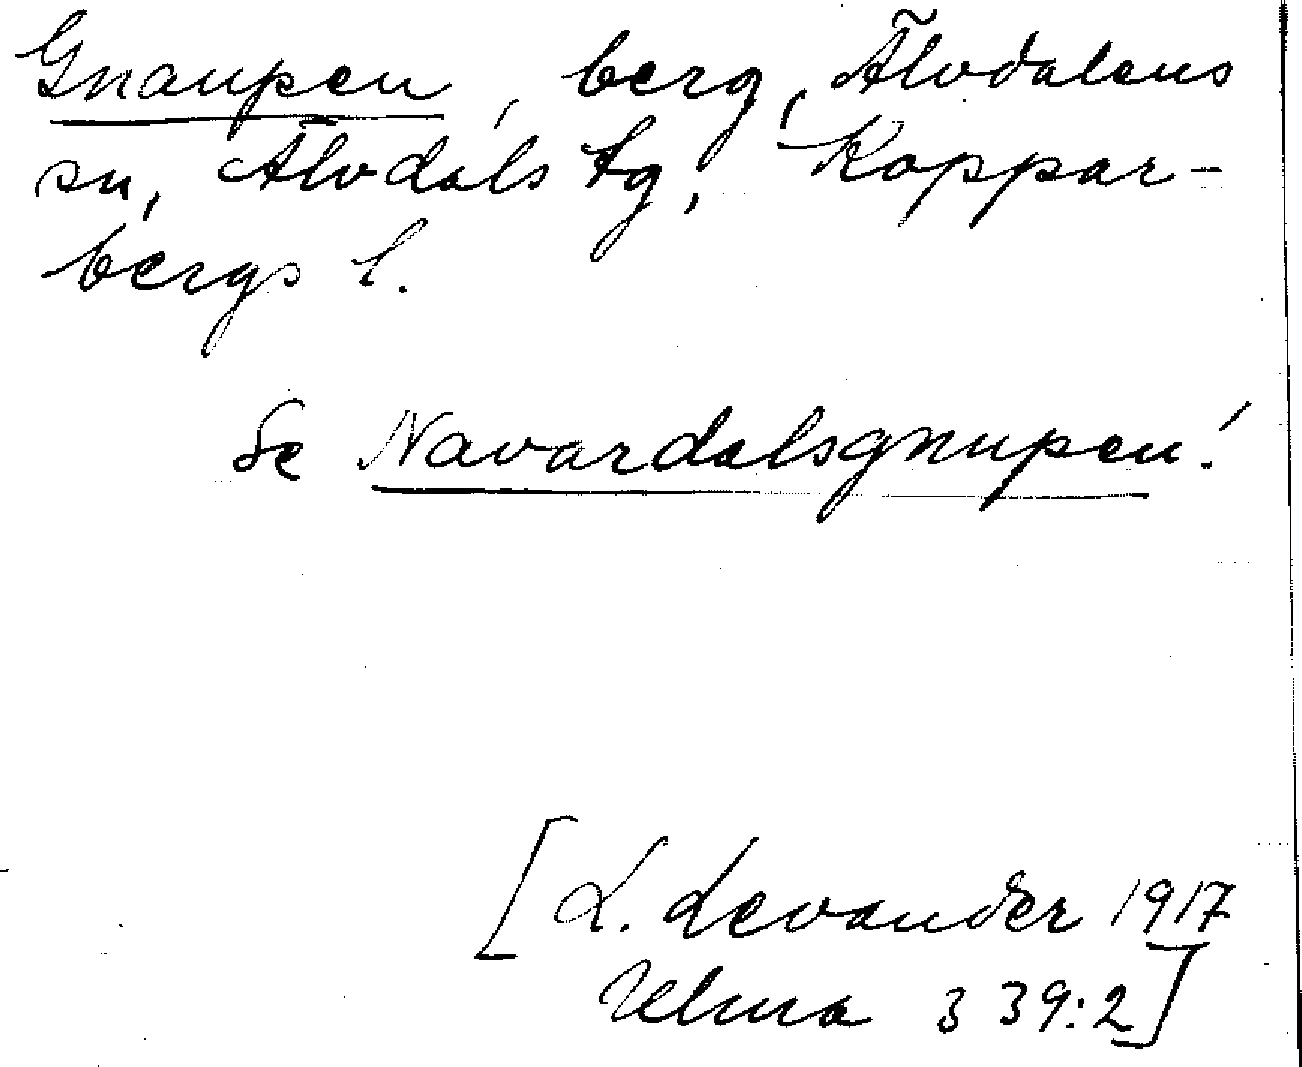 Gnaupen, berg, Älvdalens
sn, Älvdals tg, Koppar-
bergs l.
Se Navardalsgnupen!
[L. Levander 1917
Ulma 339:2]